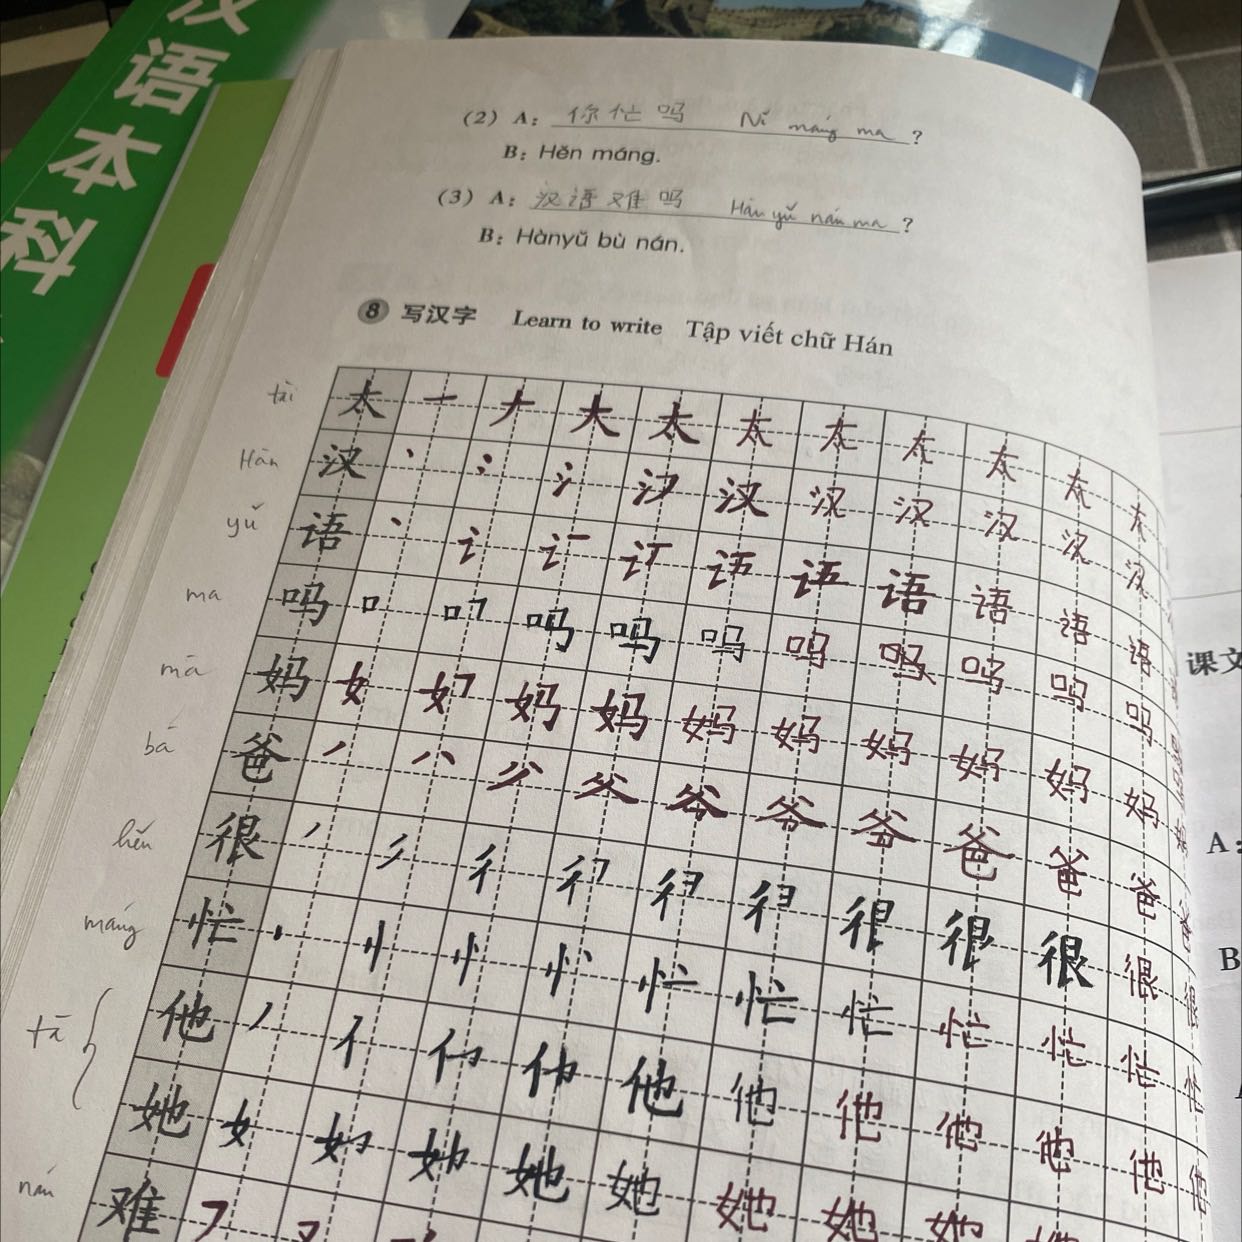 汉语本科
(2) A: 你忙吗 Nǐ máng ma ?
B: Hěn máng.
(3) A: 汉语难吗 Hàn yǔ nán ma ?
B: Hànyǔ bù nán.
8 写汉字 Learn to write Tập viết chữ Hán
tài 太 一 ナ 大 太 太 太 太 太 太 太
Hàn 汉 丶 冫 氵 汉 汉 汉 汉 汉 汉
yǔ 语 丶 讠 语 语 语 语
ma 吗 口 吗 吗 吗 吗 吗 吗 吗 吗
mā 妈 女 妈 妈 妈 妈 妈 妈 妈 妈
bá 爸 丿 八 父 爸 爸 爸
hěn 很 丿 彳 很 很 很 很 很
máng 忙 丶 忄 忙 忙 忙 忙 忙 忙 忙
tā 他 丿 亻 他 他 他 他 他 他 他
她 女 她 她 她 她 她
nán 难 フ 又
课文
A:
B